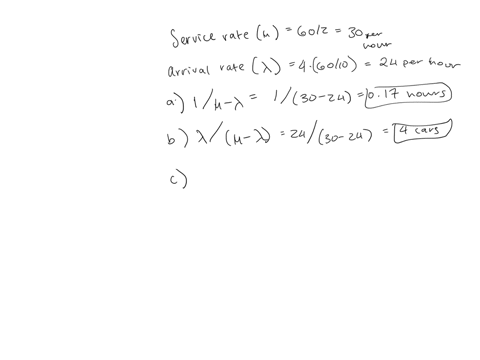 Service rate (μ) = 60/2 = 30 per hour
arrival rate (λ) = 4·(60/10) = 24 per hour
a) 1/μ-λ = 1/(30-24) = 0.17 hours
b) λ/(μ-λ) = 24/(30-24) = 4 cars
c)